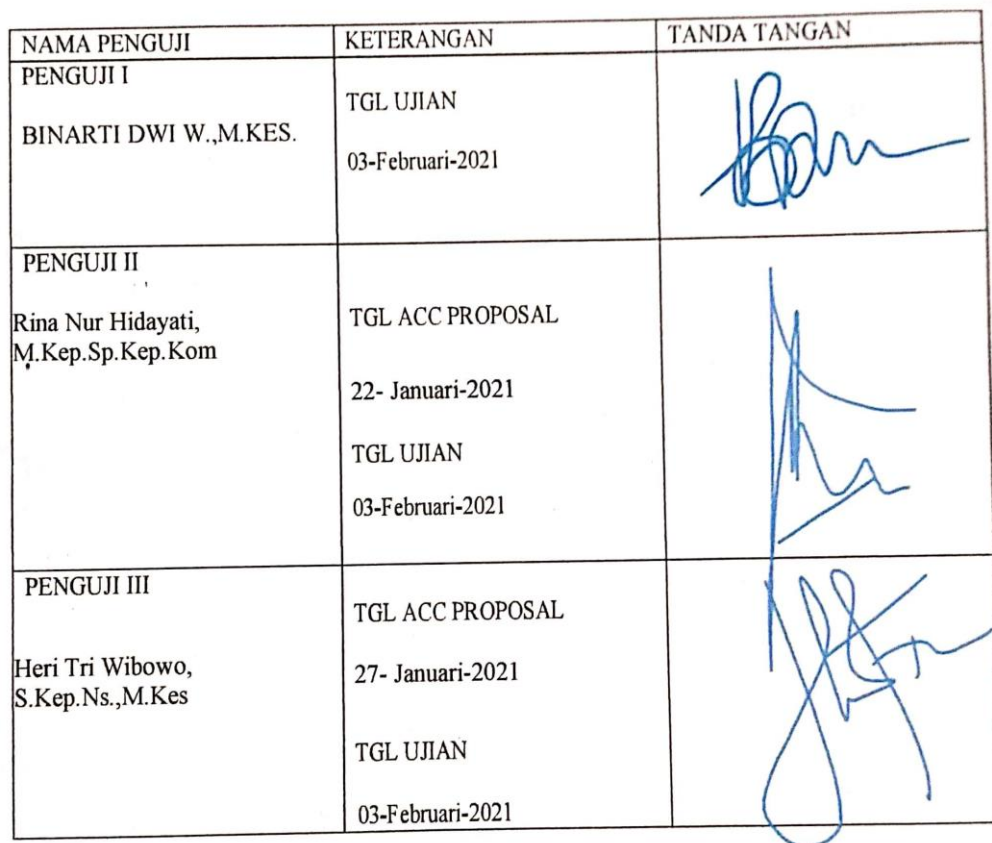 NAMA PENGUJI KETERANGAN TANDA TANGAN
PENGUJI I
TGL UJIAN
BINARTI DWI W.,M.KES.
03-Februari-2021
PENGUJI II
Rina Nur Hidayati,
M.Kep.Sp.Kep.Kom
TGL ACC PROPOSAL
22- Januari-2021
TGL UJIAN
03-Februari-2021
PENGUJI III
Heri Tri Wibowo,
S.Kep.Ns.,M.Kes
TGL ACC PROPOSAL
27- Januari-2021
TGL UJIAN
03-Februari-2021